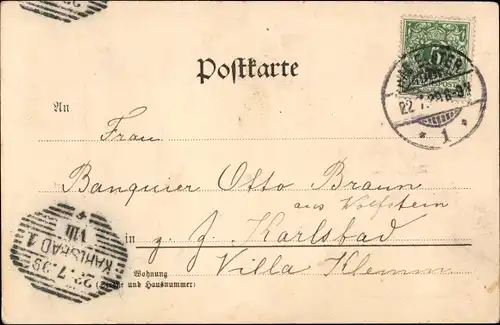 Postkarte
An
Frau
Banquier Otto Braun
aus Wolfstein
in z. Z. Karlsbad
Villa Klemm
Wohnung
(Straße und Hausnummer)
22.7.99
* 1 *
KARLSBAD 1
23.7.99
VIII